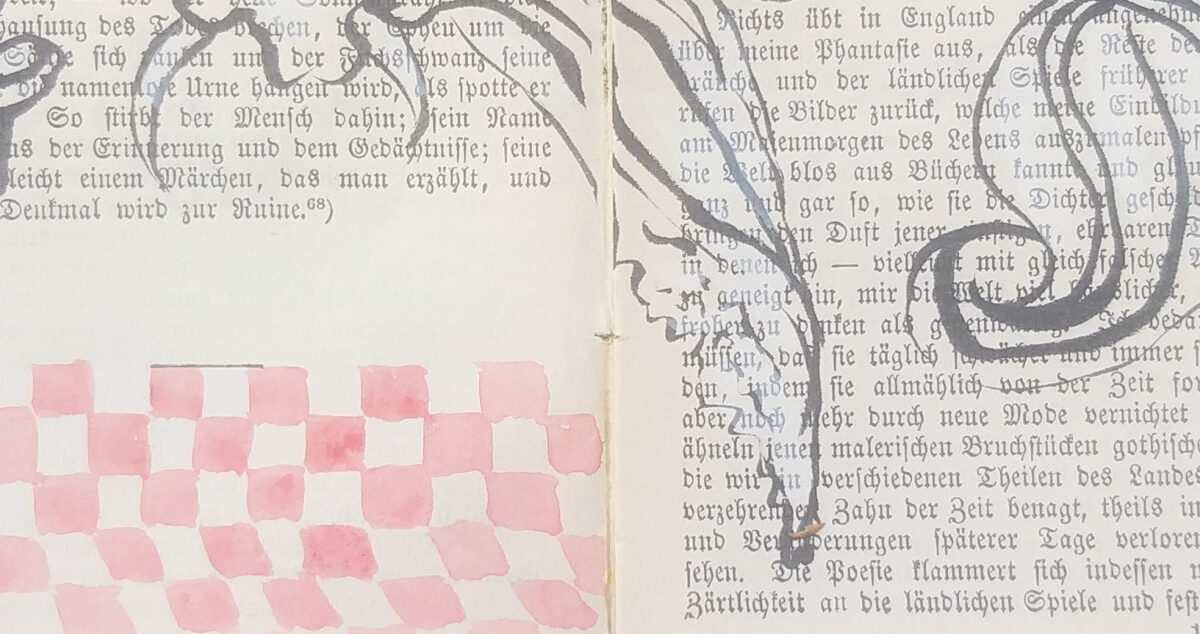 hausung des vir chen, der Epheu um die
Särge sich ranken und der Fuchsschwanz seine
die namenlose Urne hangen wird, als spotte er
So stirbt der Mensch dahin; sein Name
us der Erinnerung und dem Gedächtnisse; seine
leicht einem Märchen, das man erzählt, und
Denkmal wird zur Ruine.⁶⁸)
Nichts übt in England einen angenehm
über meine Phantasie aus, als die Reste de
bräuche und der ländlichen Spiele früherer
rufen die Bilder zurück, welche meine Einbildu
am Maienmorgen des Lebens auszumalen pf
die Welt blos aus Büchern kannte und glau
ganz und gar so, wie sie die Dichter geschild
bringen den Duft jener einstigen, ehrbaren
in denen ich — vielleicht mit gleich falscher
zu geneigt bin, mir die Welt viel häuslicher,
froher zu denken als gegenwärtig. Ich beda
müssen, daß sie täglich schwächer und immer s
den, indem sie allmählich von der Zeit for
aber noch mehr durch neue Mode vernichtet
ähneln jenen malerischen Bruchstücken gothische
die wir in verschiedenen Theilen des Landes
verzehrenden Zahn der Zeit benagt, theils in
und Veränderungen späterer Tage verloren
sehen. Die Poesie klammert sich indessen
Zärtlichkeit an die ländlichen Spiele und fest